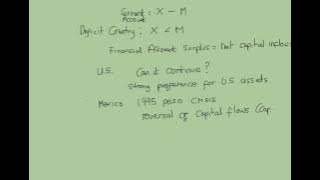 Current = X - M
Account
Deficit Country : X < M
Financial Account Surplus = net capital inflows
U.S. Can it continue?
strong preference for U.S assets
Mexico 1995 peso crisis
reversal of Capital flows (Cap